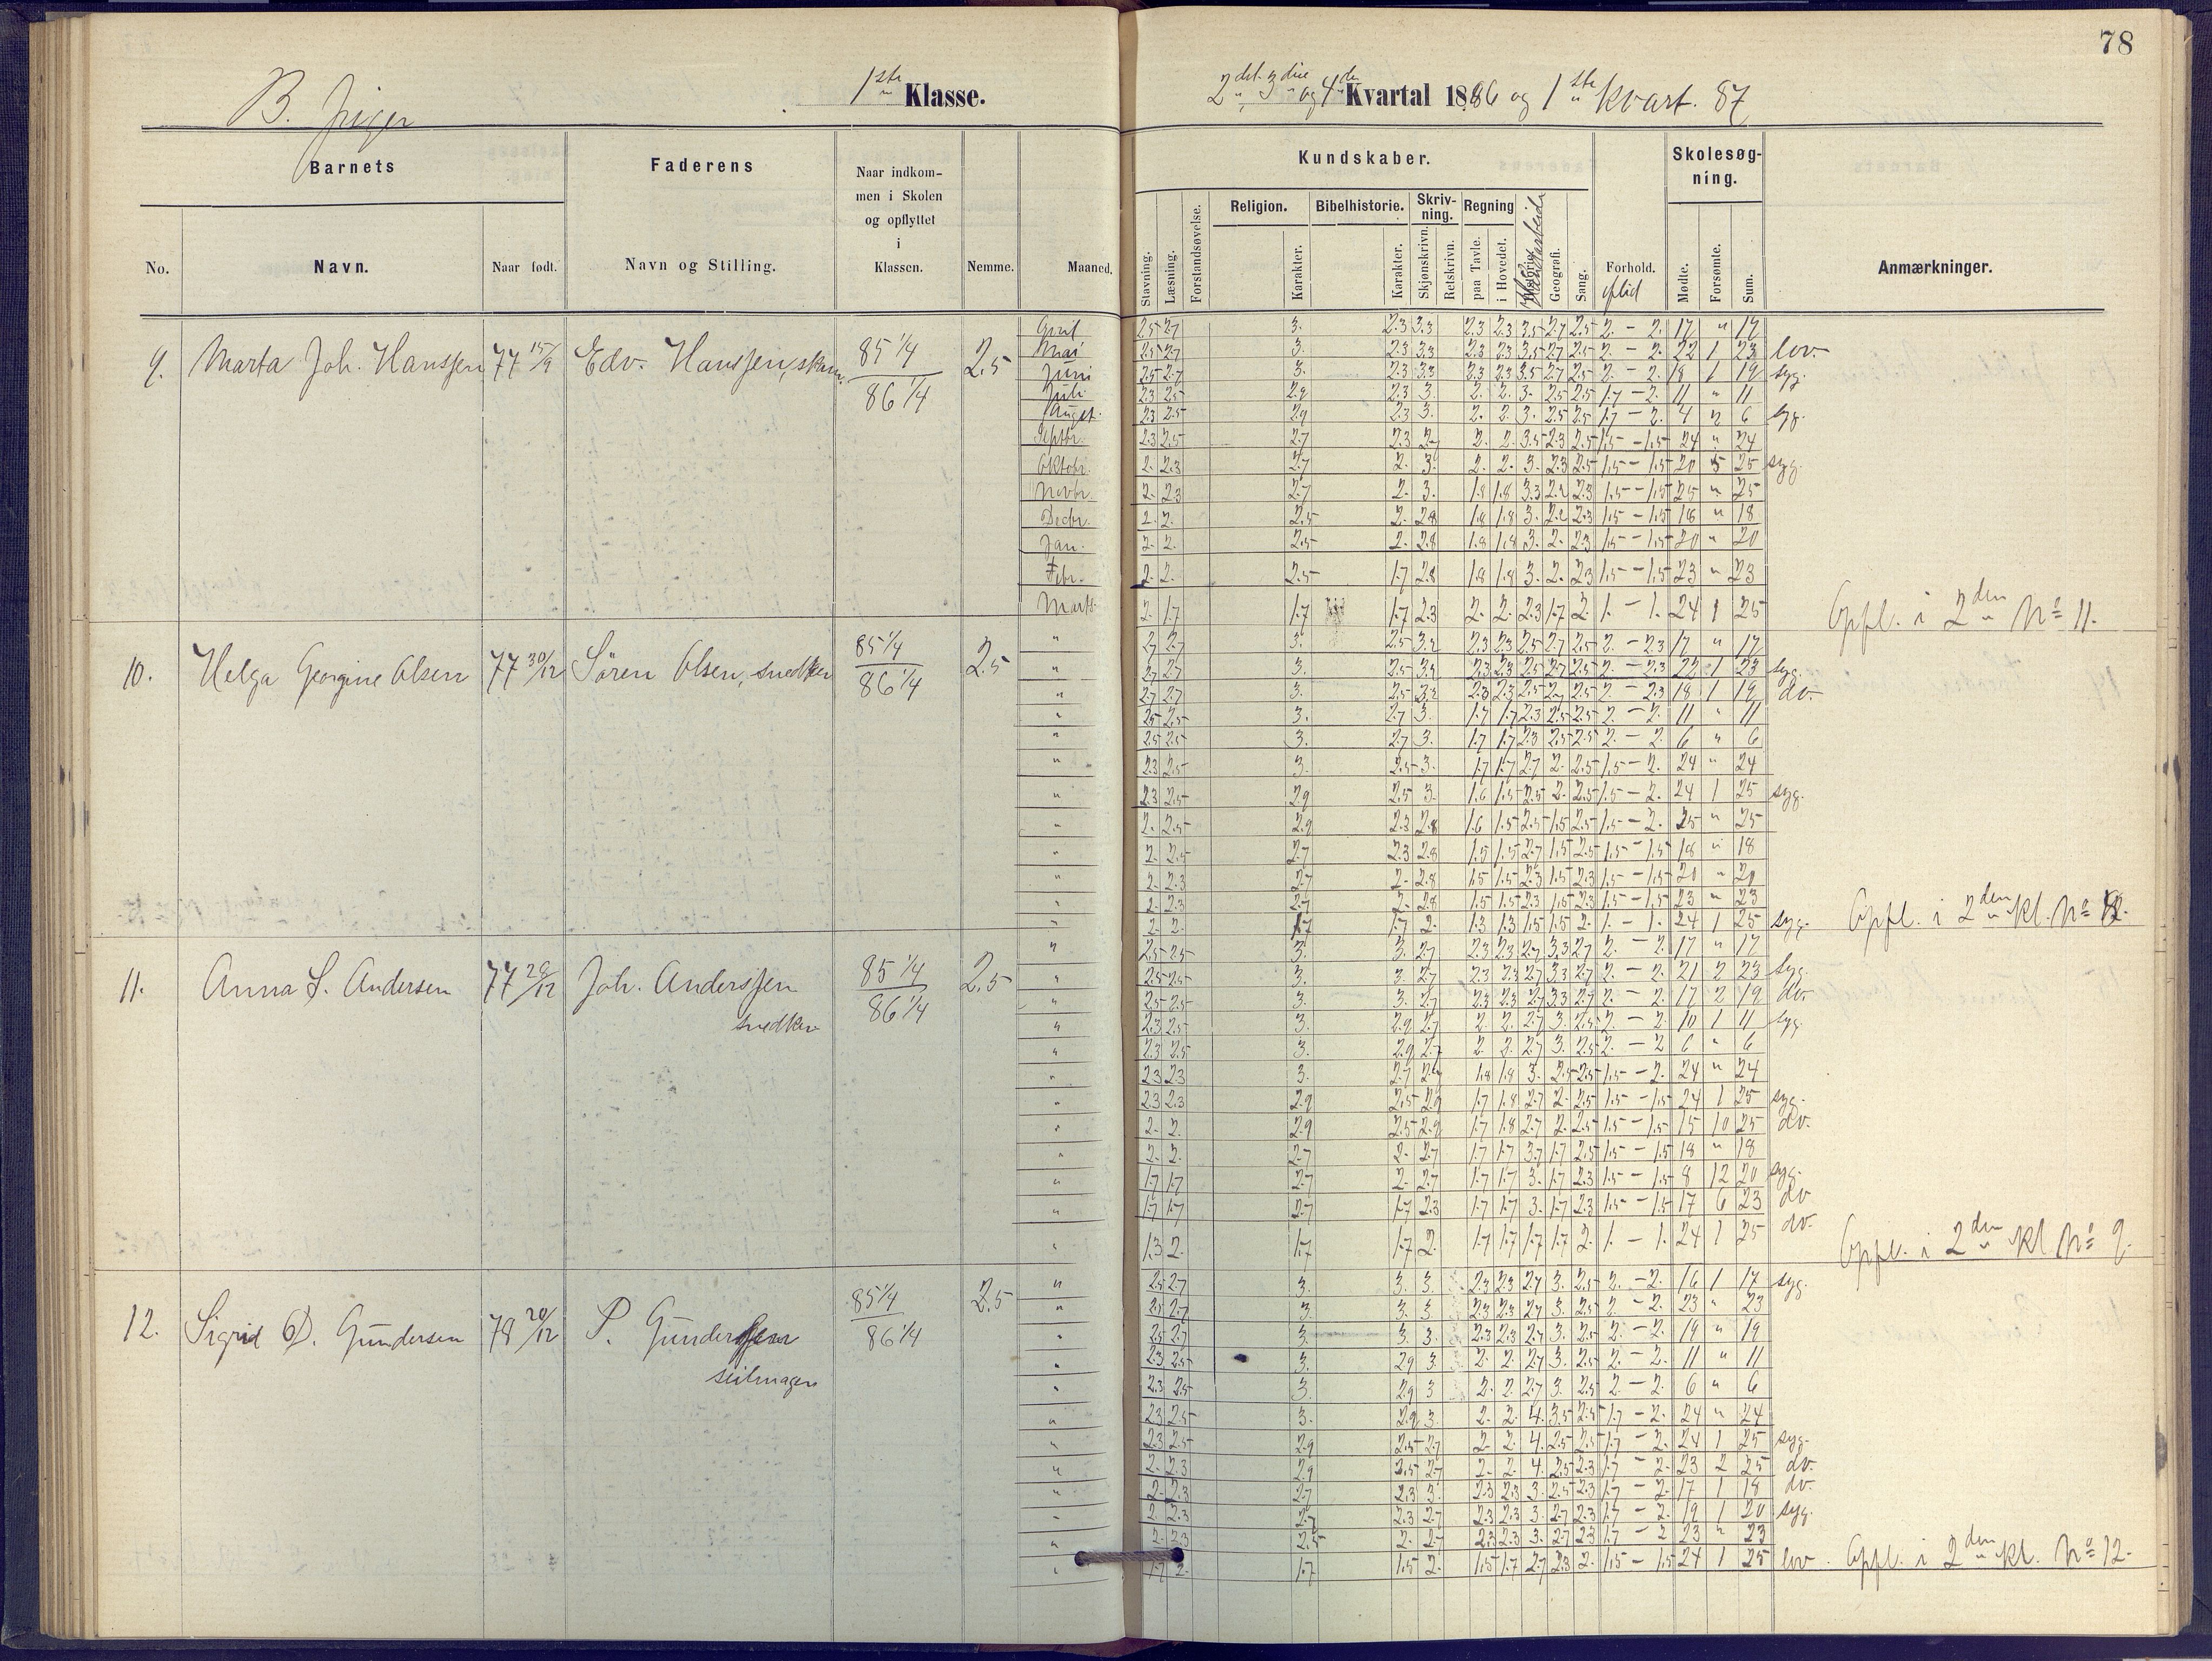 78
B. Piger
1ste Klasse.
2det 3die og 4de Kvartal 1886 og 1ste Kvart. 87
Barnets
Faderens
Naar indkom-
men i Skolen
og opflyttet
i
Klassen.
No.
Navn.
Naar født.
Navn og Stilling.
Nemme.
Maaned.
Kundskaber.
Skolesøg-
ning.
Religion.
Bibelhistorie.
Skriv-
ning.
Regning
Stavning.
Læsning.
Forstandsøvelse.
Karakter.
Karakter.
Skjønskrivn.
Retskrivn.
paa Tavle.
i Hovedet.
Haandarbeide
Geografi.
Sang.
Forhold.
Flid
Mødte.
Forsømte.
Sum.
Anmærkninger.
9. Marta Joh. Hanssen 77 15/9 Edv. Hanssen, 85 1/4 2,5
86 1/4
April 2.5 2.7 3. 2.3 3.3 2.3 2.3 3.5 2.7 2.5 2. - 2. 17 " 17
Mai 2.5 2.7 3. 2.3 3.3 2.3 2.3 3.5 2.7 2.5 2. - 2. 22 1 23 lov.
Juni 2.5 2.7 3. 2.3 3.3 2.3 2.3 3.5 2.7 2.5 2. - 2. 18 1 19 syg.
Juli 2.3 2.5 2.9 2.3 3. 2. 2. 3. 2.5 2.5 1.7 - 2. 11 " 11
Augst. 2.3 2.5 2.9 2.3 3. 2. 2. 3. 2.5 2.5 1.7 - 2. 4 2 6 syg.
Septbr. 2.3 2.5 2.7 2.3 2. 2. 3.5 2.3 2.5 1.5 - 1.5 24 " 24
Oktobr. 2. 2.3 2.7 2. 3. 2. 2. 3. 2.3 2.5 1.5 - 1.5 20 5 25 syg.
Novbr. 2. 2.3 2.7 2. 3. 1.8 1.8 3.3 2.2 2.3 1.5 - 1.5 25 " 25
Decbr. 2. 2. 2.5 2. 2.8 1.8 1.8 3. 2.2 2.3 1.5 - 1.5 18 " 18
Jan. 2. 2. 2.5 2. 2.8 1.8 1.8 3. 2. 2.3 1.5 - 1.5 20 " 20
Febr. 2. 2. 2.5 1.7 2.8 1.8 1.8 3. 2. 2.3 1.5 - 1.5 23 " 23
Marts 2. 1.7 1.7 1.7 2.3 2. 2. 2.3 1.7 2. 1. - 1. 24 1 25 Opfl. i 2den No 11.
10. Helga Georgine Olsen 77 30/12 Sören Olsen, snedker 85 1/4 2,5
86 1/4
" 2.7 2.7 3. 2.5 3.2 2.3 2.3 2.5 2.7 2.5 2. - 2.3 17 " 17
" 2.7 2.7 3. 2.5 3.2 2.3 2.3 2.5 2.7 2.5 2. - 2.3 22 1 23 syg.
" 2.7 2.7 3. 2.5 3.2 2.3 2.3 2.5 2.7 2.5 2. - 2.3 18 1 19 do.
" 2.5 2.5 3. 2.7 3. 1.7 1.7 2.3 2.5 2.5 2. - 2. 11 " 11
" 2.5 2.5 3. 2.7 3. 1.7 1.7 2.3 2.5 2.5 2. - 2. 6 " 6
" 2.3 2.5 3. 2.5 3. 1.7 1.7 2.7 2. 2.5 1.5 - 2. 24 " 24
" 2.3 2.5 2.9 2.5 3. 1.6 1.5 2.5 2. 2.5 1.5 - 2. 24 1 25 syg.
" 2. 2.5 2.9 2.3 2.8 1.6 1.5 2.5 1.5 2.5 1.5 - 2. 25 " 25
" 2. 2.5 2.7 2.3 2.8 1.5 1.5 2.7 1.5 2.5 1.5 - 1.5 18 " 18
" 2. 2.3 2.7 2. 2.8 1.5 1.5 2.3 1.5 2.3 1.5 - 1.5 20 " 20
" 2. 2.3 2.7 2. 2.8 1.5 1.5 2.3 1.5 2.3 1.5 - 1.5 23 " 23
" 2. 2. 1.7 1.7 2. 1.3 1.3 1.5 1.5 2. 1. - 1. 24 1 25 syg. Opfl. i 2den Kl. No
11. Anna S. Andersen 77 28/12 Joh. Anderssen 85 1/4 2,5
snedker 86 1/4
" 2.5 2.5 3. 3. 2.7 2.3 2.3 2.7 3.3 2.7 2. - 2. 17 " 17
" 2.5 2.5 3. 3. 2.7 2.3 2.3 2.7 3.3 2.7 2. - 2. 21 2 23 syg.
" 2.5 2.5 3. 3. 2.7 2.3 2.3 2.7 3.3 2.7 2. - 2. 17 2 19 do.
" 2.3 2.5 3. 2.9 2.7 2. 2. 2.7 3. 2.5 2. - 2. 10 1 11 syg.
" 2.3 2.5 3. 2.9 2.7 2. 2. 2.7 3. 2.5 2. - 2 6 " 6
" 2.3 2.3 3. 2.7 1.8 1.8 3. 2.5 2.5 1.5 - 2. 24 " 24
" 2.3 2.3 2.9 2.5 2.9 1.7 1.8 2.7 2. 2.5 1.5 - 1.5 24 1 25 syg.
" 2. 2. 2.9 2.5 2.9 1.7 1.8 2.7 2. 2.5 1.5 - 1.5 15 10 25 do.
" 2. 2. 2.7 2. 2.7 1.7 1.7 3.7 1.7 2.5 1.5 - 1.5 18 " 18
" 1.7 1.7 2.7 2. 2.7 1.7 1.7 3. 1.7 2.3 1.5 - 1.5 8 12 20 syg.
" 1.7 1.7 2.7 1.7 2.3 1.7 1.7 3. 1.7 2.3 1.5 - 1.5 17 6 23 do
" 1.3 2. 1.7 1.7 2. 1.7 1.7 1.7 1.7 2. 1. - 1. 24 1 25 do. Opfl. i 2den Kl No 9.
12. Sigrid D. Gundersen 78 20/12 P. Gunderssen 85 1/4 2,5
seilmager 86 1/4
" 2.5 2.7 3. 3. 3. 2.3 2.3 2.7 3. 2.5 2. - 2. 16 1 17 syg.
" 2.5 2.7 3. 3. 3. 2.3 2.3 2.7 3. 2.5 2 - 2. 23 " 23
" 2.5 2.7 3. 3. 3. 2.3 2.3 2.7 3. 2.5 2. - 2. 19 " 19
" 2.3 2.5 3. 2.9 3. 2. 2. 2.7 3. 2.5 2. - 2. 11 " 11
" 2.3 2.5 3. 2.9 3 2. 2. 2.7 3. 2.5 2. - 2. 6 " 6
" 2.3 2.5 3. 2.9 3. 2. 2. 4. 3.5 2.5 1.7 - 2. 24 " 24
" 2.3 2.5 2.9 2.5 2.7 2 2. 4. 2.5 2.5 1.7 - 2. 24 1 25 syg.
" 2. 2.3 2.9 2.5 2.7 2. 2. 4. 2.5 2.3 1.7 - 2. 23 2 25 do.
" 2. 2.3 2.7 2.3 3. 2.3 2.3 3. 2.5 2.3 1.7 - 2. 17 1 18 do.
" 2. 2.3 2.7 2.3 2.7 2.3 2.3 3. 2.7 2.3 1.7 - 2. 19 1 20 syg.
" 2. 2.3 2.5 2. 2.7 2.3 2.3 3. 2.7 2.3 1.7 - 2 23 " 23
" 1.7 2. 1.7 1.5 2. 1.5 1.7 2.7 2.3 2. 1.5 - 1.5 24 1 25 lov. Opfl. i 2den Kl. No 12.